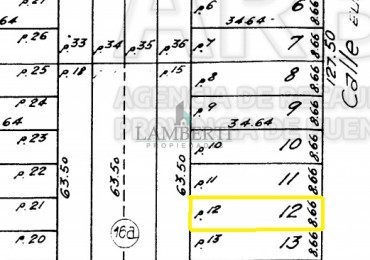 p.6 6 8.66
64 p.26 34.64
p.33 p.34 p.35 p.36 p.7 7 8.66
p.25 p.18 p.15 p.8 8 8.66 127.50 Calle
AGENCIA DE RECAU
p.24 p.9 9 8.66
64 LAMBERTI 34.64
PROPIEDADES
PROVINCIA DE BUEN
p.23 p.10 10 8.66
p.22 63.50 63.50 63.50 p.11 11 8.66
p.21 p.12 12 8.66
16a
p.20 p.13 13 8.66